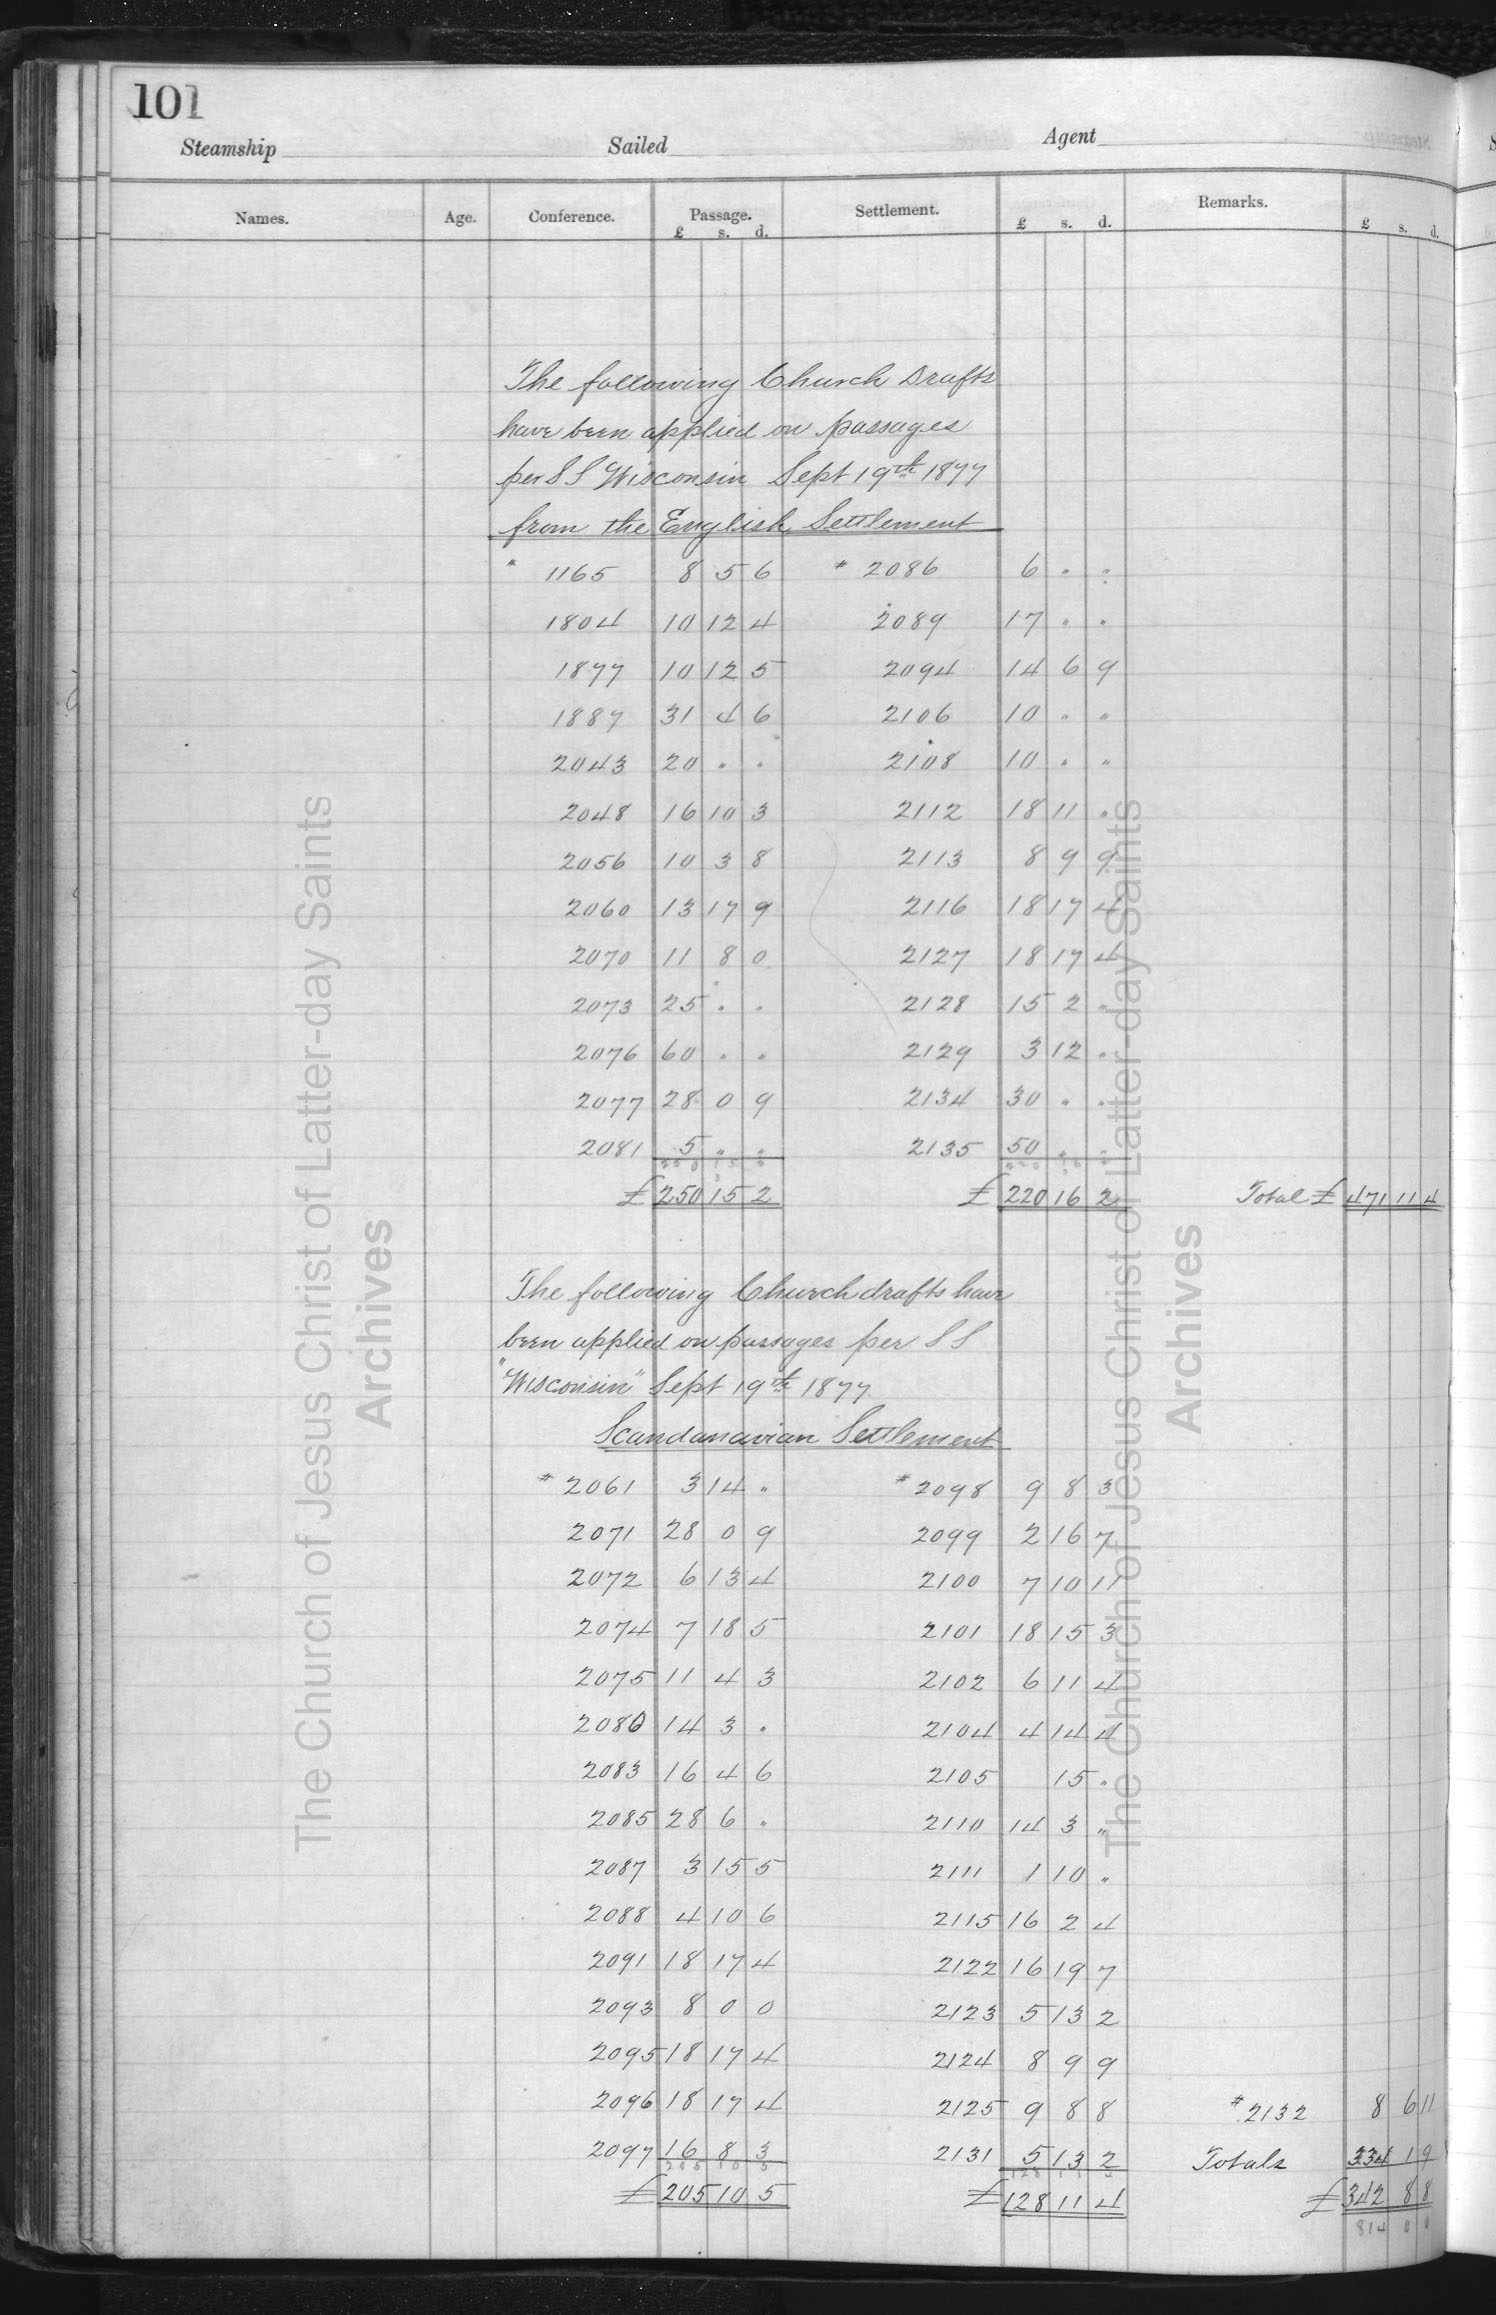 101
Steamship Sailed Agent
Names. Age. Conference. Passage. Settlement. Remarks.
£ s. d. £ s. d. £ s. d.
The following Church Drafts
have been applied on passages
per S S Wisconsin Sept 19th 1877
from the English Settlement
# 1165 8 5 6 # 2086 6 " "
1804 10 12 4 2089 17 " "
1877 10 12 5 2094 14 6 9
1887 31 4 6 2106 10 " "
2043 20 " " 2108 10 " "
2048 16 10 3 2112 18 11 "
2056 10 3 8 2113 8 9 9
2060 13 17 9 2116 18 17 4
2070 11 8 0 2127 18 17 4
2073 25 " " 2128 15 2 "
2076 60 " " 2129 3 12 "
2077 28 0 9 2134 30 " "
2081 5 " " 2135 50 " "
£ 250 15 2 £ 220 16 2 Total £ 471 11 4
The following Church drafts have
been applied on passages per S S
"Wisconsin" Sept 19th 1877.
Scandanavian Settlement
# 2061 3 14 " # 2098 9 8 3
2071 28 0 9 2099 2 16 7
2072 6 13 4 2100 7 10 11
2074 7 18 5 2101 18 15 3
2075 11 4 3 2102 6 11 4
2080 14 3 " 2104 4 14 4
2083 16 4 6 2105 15 "
2085 28 6 " 2110 14 3 "
2087 3 15 5 2111 1 10 "
2088 4 10 6 2115 16 2 4
2091 18 17 4 2122 16 19 7
2093 8 0 0 2123 5 13 2
2095 18 17 4 2124 8 9 9
2096 18 17 4 2125 9 8 8 # 2132 8 6 11
2097 16 8 3 2131 5 13 2 Totals 334 1 9
£ 205 10 5 £ 128 11 4 £ 342 8 8
814 0 0
The Church of Jesus Christ of Latter-day Saints
Archives
The Church of Jesus Christ of Latter-day Saints
Archives